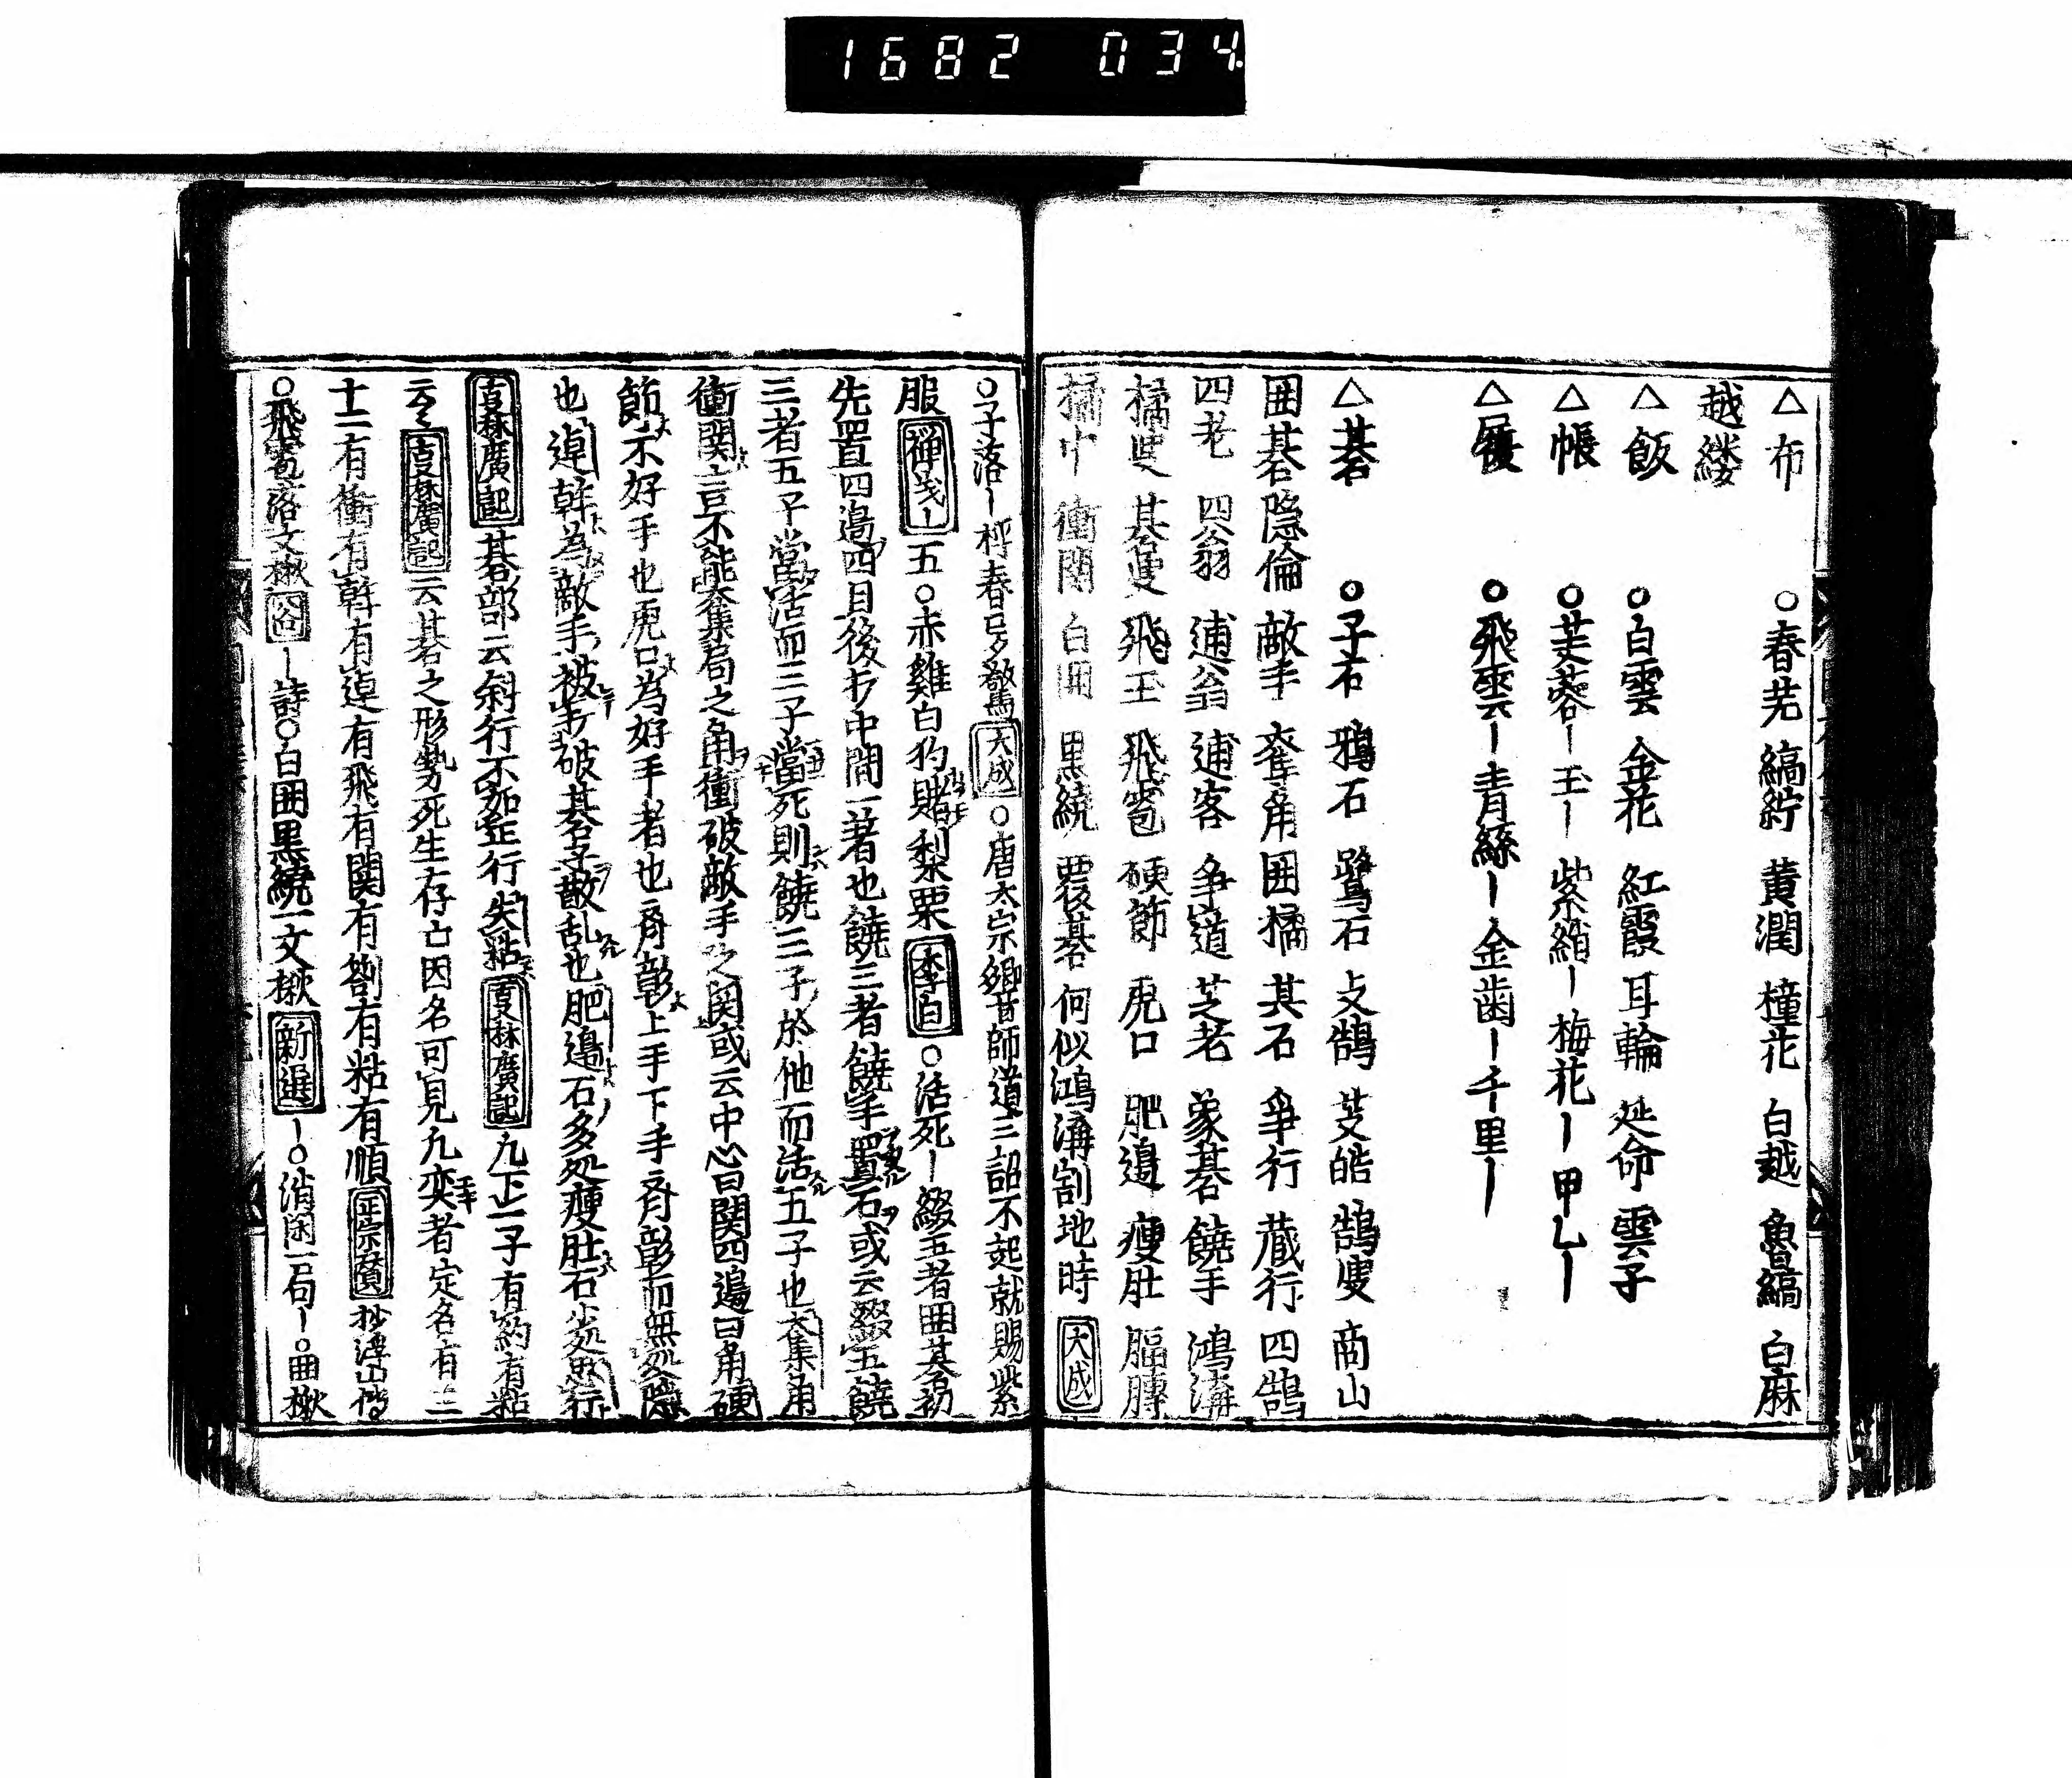 1682 034
△布 ○春芜 縞紵 黄潤 橦花 白越 魯縞 白麻
越縷
△飯 ○白雲 金花 紅霞 耳輪 延命 雲子
△帳 ○芙蓉ー玉ー紫綃ー梅花ー甲乙ー
△屐 ○飛雲ー青絲ー金歯ー千里ー
△碁 ○子石 鴉石 鷺石 鵠 皓 鵠叟 商山
囲碁隠倫 敵手 奪角 囲橘 其石 争行 蔵行 四鵠
四老 四翁 逋翁 逋客 争道 芝老 象碁 饒手 鴻溝
橘叟 碁叟 飛玉 飛雹 硬節 虎口 肥邉 瘦肚 膈膊
橘中 衝関 白囲 黒繞 覆碁 何似鴻溝割地時 大成
○子落ー枰春夢驚 大成 ○唐太宗卿昔師道三詔不起就賜紫
服 禅 ー五○赤雞白狗賭梨栗 李白 ○活死ー綴五者囲碁初
先置四邉四目後打中間一著也饒三者饒手置石或云綴五饒
三者五子當活而三子當死則饒三子於他而活五子也奪角
衝関ニ言不能奪集局之角衝破敵手之関或云中心曰関四邉曰角硬
節不好手也虎口為好手者也斉彭上手下手斉彭而無
也逴斡為敵手被手破碁子散乱也肥邉石多処瘦肚石少処思行
事林廣記 碁部云斜行不如正行失粘 事林廣記 九正一子有約有粘
云々 事林廣記 云碁之形勢死生存亡因名可見凡奕者定名有三
十二有衝有斡有逴有飛有関有劄有粘有順 正宗賛 抄浮山傳
○飛雹落文楸 谷 ー詩○白囲黒繞一文楸 新選 ー○消閑一局ー○囲楸